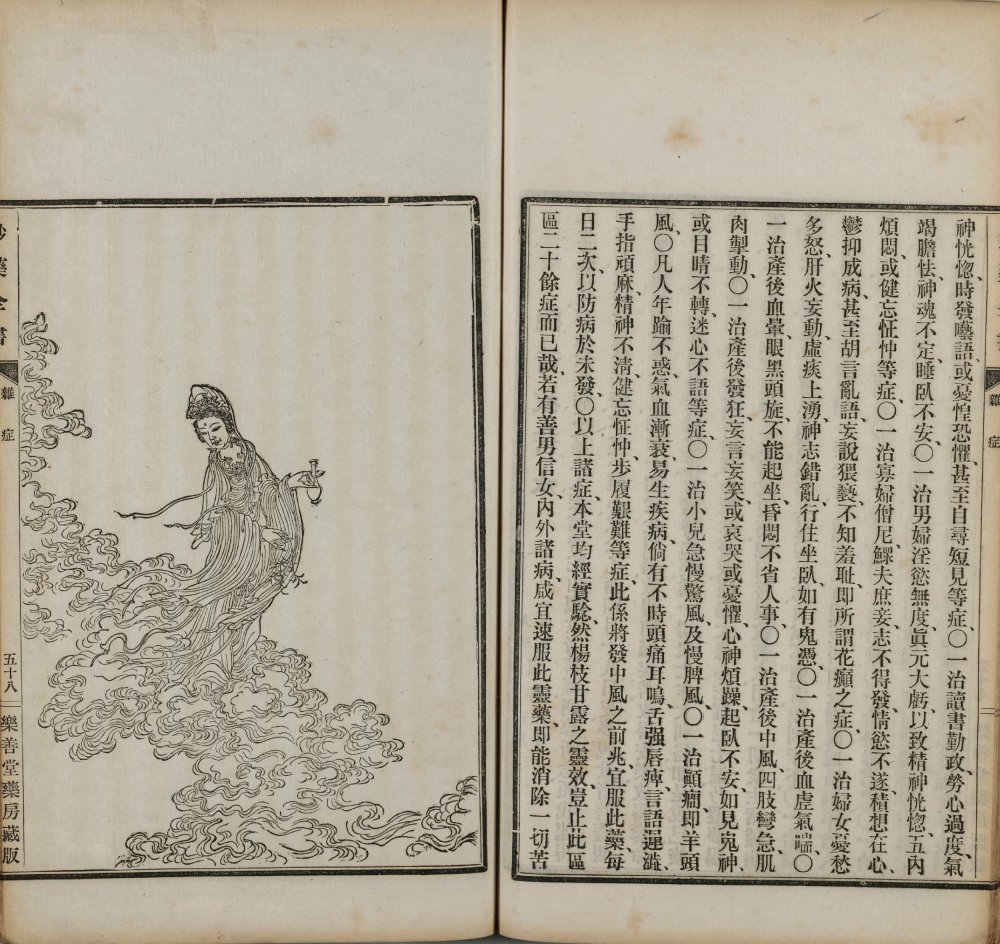 神恍惚、時發囈語、或憂惶恐懼、甚至自尋短見等症、〇一治讀書勤政、勞心過度、氣
竭膽怯、神魂不定、睡臥不安、〇一治男婦淫慾無度、眞元大虧、以致精神恍惚、五內
煩悶、或健忘怔忡等症、〇一治寡婦僧尼鰥夫庶妾、志不得發、情慾不遂、積想在心、
鬱抑成病、甚至胡言亂語、妄說猥褻、不知羞耻、即所謂花癲之症、〇一治婦女憂愁
多怒、肝火妄動、虛痰上湧、神志錯亂、行住坐臥、如有鬼憑、〇一治產後血虛氣喘、〇
一治產後血暈、眼黑頭旋、不能起坐、昏悶不省人事、〇一治產後中風、四肢彎急、肌
肉掣動、〇一治產後發狂、妄言妄笑、或哀哭、或憂懼、心神煩躁、起臥不安、如見鬼神、
或目睛不轉、迷心不語等症、〇一治小兒急慢驚風、及慢脾風、〇一治顚癎、即羊頭
風、〇凡人年踰不惑、氣血漸衰、易生疾病、倘有不時頭痛耳鳴、舌强唇痺、言語遲澁、
手指頑麻、精神不清、健忘怔忡、步履艱難等症、此係將發中風之前兆、宜服此藥、每
日二次、以防病於未發、〇以上諸症、本堂均經實騐、然楊枝甘露之靈效、豈止此區
區二十餘症而已哉、若有善男信女、內外諸病、咸宜速服此靈藥、即能消除一切苦
雜症
藥全書
雜症
五十八
樂善堂藥房藏版